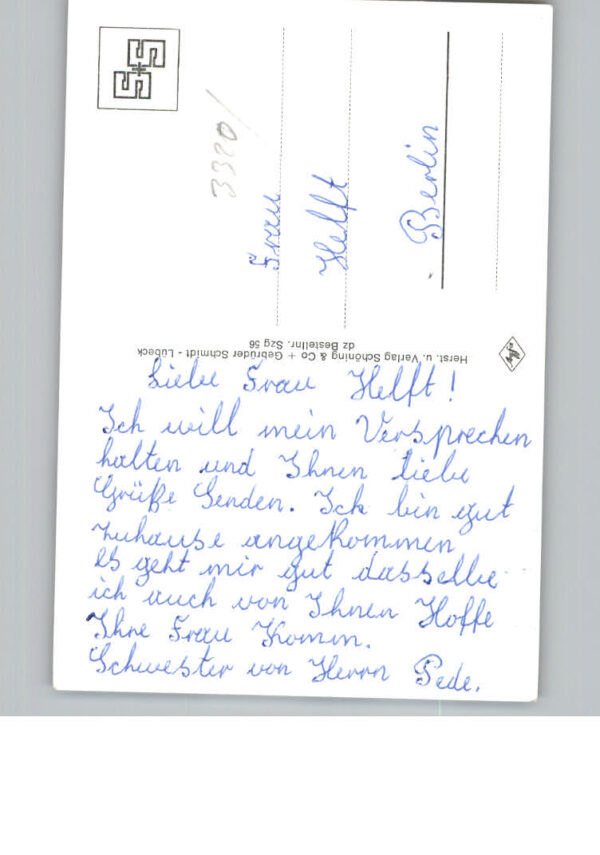 3320/
Frau
Helft
Berlin
Herst. u. Verlag Schöning & Co + Gebrüder Schmidt - Lübeck
dz Bestellnr. Szg 56
Liebe Frau Helft!
Ich will mein Versprechen
halten und Ihnen liebe
Grüße Senden. Ich bin gut
zuhause angekommen
es geht mir gut dasselbe
ich auch von Ihnen Hoffe
Ihre Frau Komm.
Schwester von Herrn Pede.